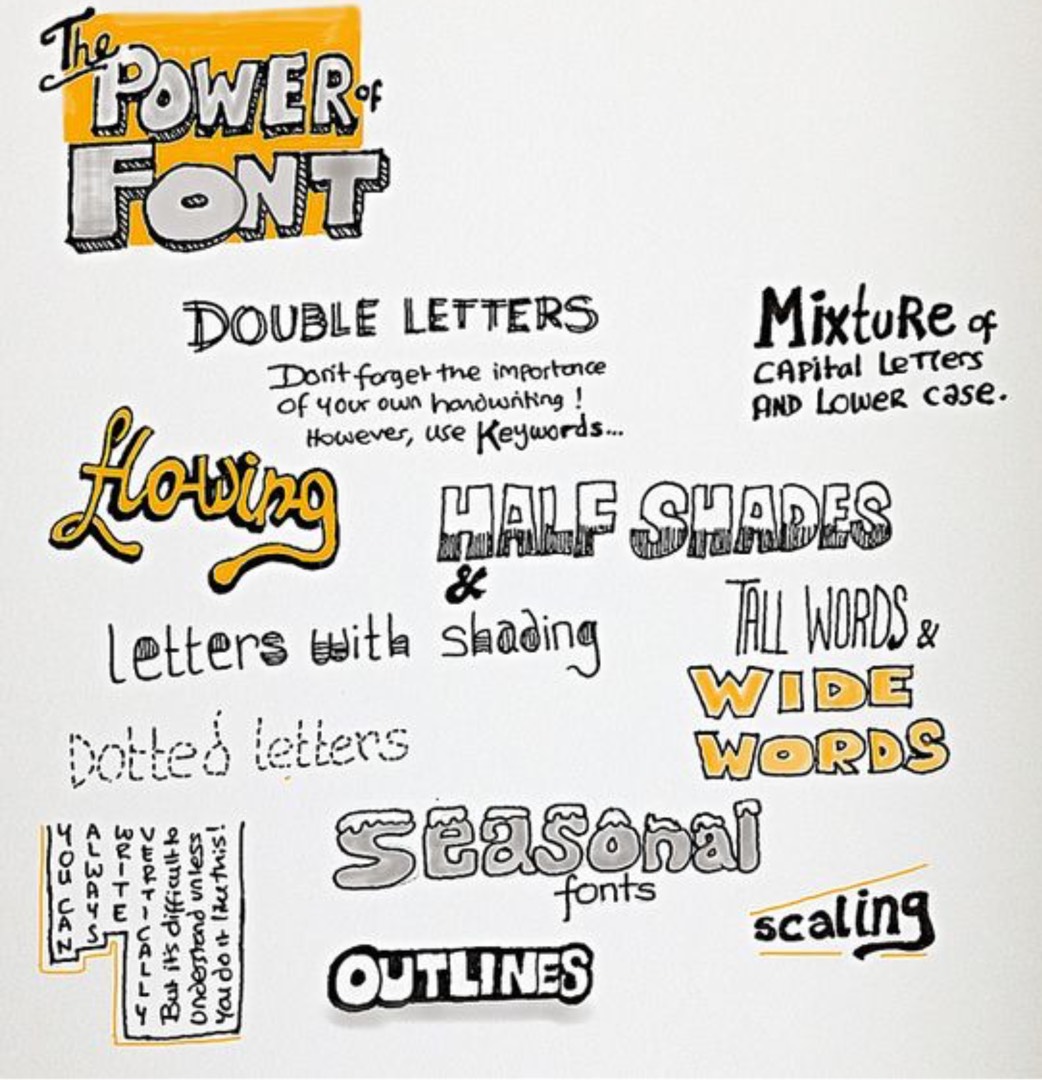 The
POWER of
FONT
DOUBLE LETTERS
Don't forget the importance
of your own handwriting!
However, use Keywords...
MixtuRe of
CAPital LeTTers
AND LoWER case.
flowing
HALF SHADES
&
letters with shading
TALL WORDS &
WIDE
WORDS
Dotted letters
YOU CAN
ALWAYS
WRITE
VERTICALLY
But it's difficult to
Understand unless
you do it like this!
Seasonal
fonts
scaling
OUTLINES